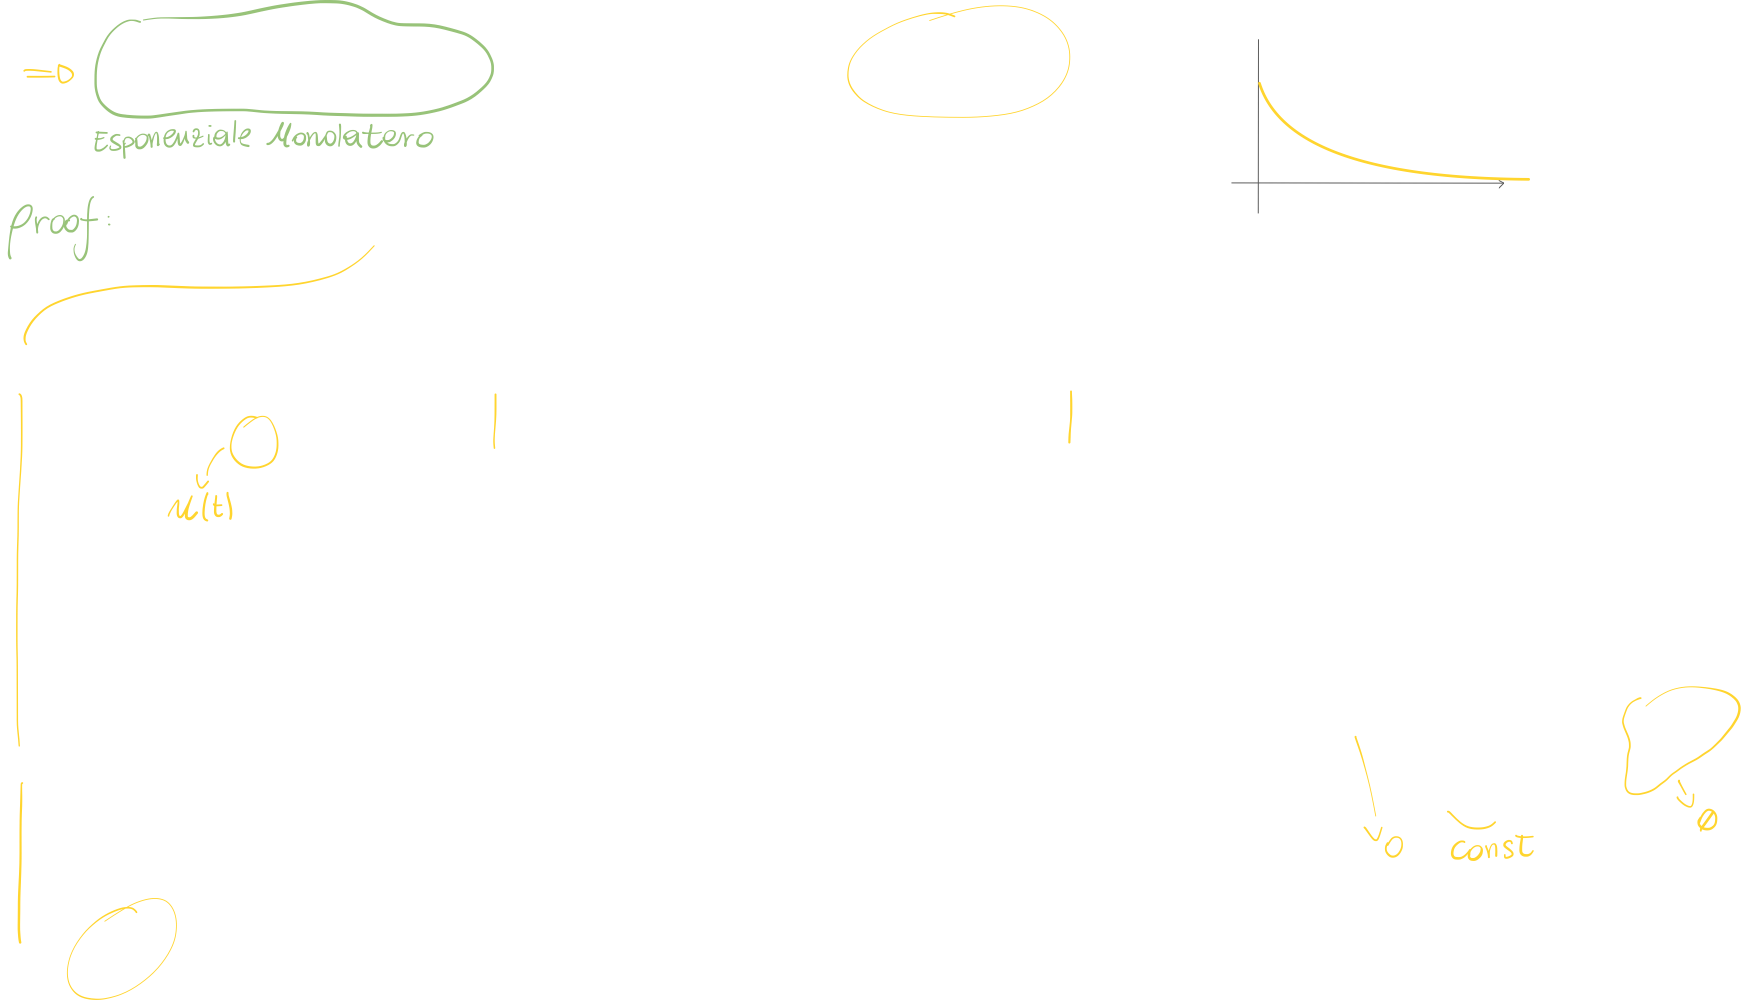 =D
Esponenziale Monolatero
Proof:
u(t)
0 const
Ø